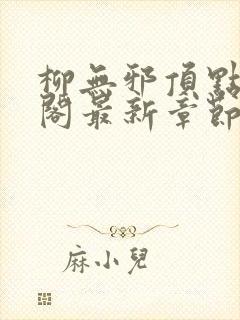 柳無邪頂點
閣最新章節
麻小兒